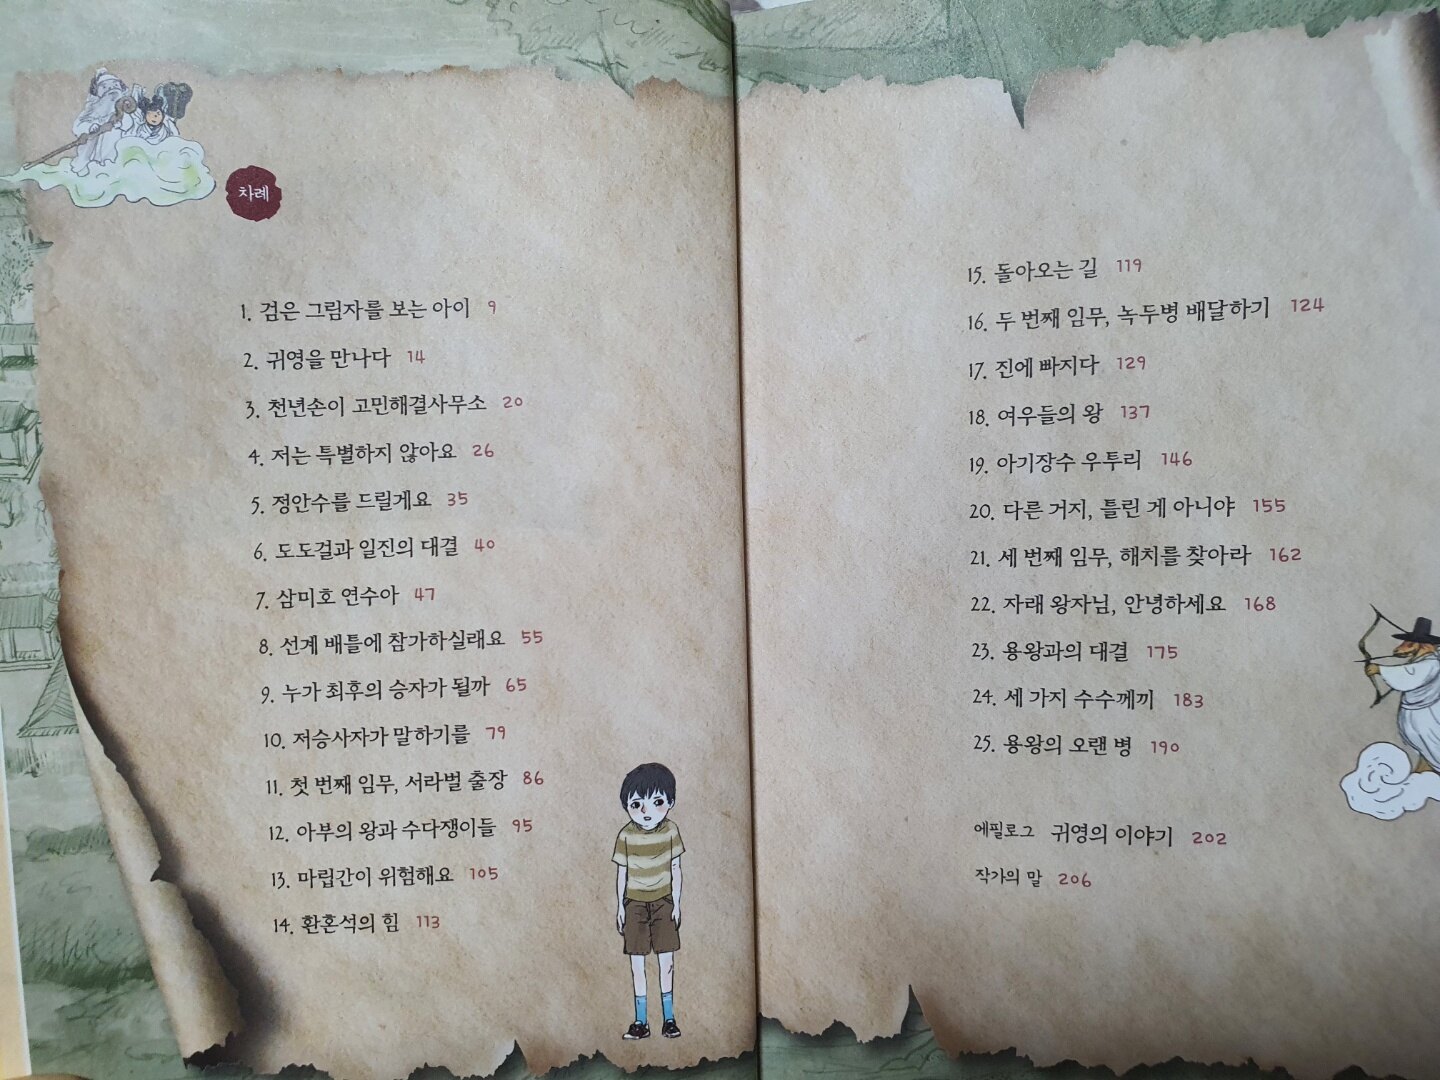 차례
1. 검은 그림자를 보는 아이 9
2. 귀영을 만나다 14
3. 천년손이 고민해결사무소 20
4. 저는 특별하지 않아요 26
5. 정안수를 드릴게요 35
6. 도도걸과 일진의 대결 40
7. 삼미호 연수아 47
8. 선계 배틀에 참가하실래요 55
9. 누가 최후의 승자가 될까 65
10. 저승사자가 말하기를 79
11. 첫 번째 임무, 서라벌 출장 86
12. 아부의 왕과 수다쟁이들 95
13. 마립간이 위험해요 105
14. 환혼석의 힘 113
15. 돌아오는 길 119
16. 두 번째 임무, 녹두병 배달하기 124
17. 진에 빠지다 129
18. 여우들의 왕 137
19. 아기장수 우투리 146
20. 다른 거지, 틀린 게 아니야 155
21. 세 번째 임무, 해치를 찾아라 162
22. 자래 왕자님, 안녕하세요 168
23. 용왕과의 대결 175
24. 세 가지 수수께끼 183
25. 용왕의 오랜 병 190
에필로그 귀영의 이야기 202
작가의 말 206